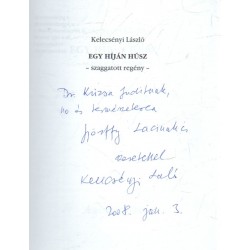 Kelecsényi László
EGY HÍJÁN HÚSZ
– szaggatott regény –
Dr. Krizsa Juditnak,
no és természetesen
Győrffy Lacinak
szeretettel
Kelecsényi Laci
2008. jan. 3.